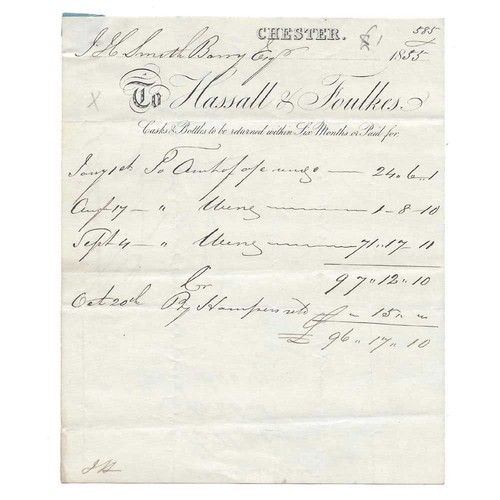 CHESTER. 585
J H Smith Barry Esqr 1855
To Hassall & Foulkes.
Casks & Bottles to be returned within Six Months or Paid for.
Jany 1st To Amt of 24 " 6 " 1
Augt 17 - " 1 - 8 - 10
Sept 4 - " 71 " 17 - 11
97 " 12 " 10
Cr
Oct 20th By Hampers retd " 15 " "
£ 96 " 17 " 10